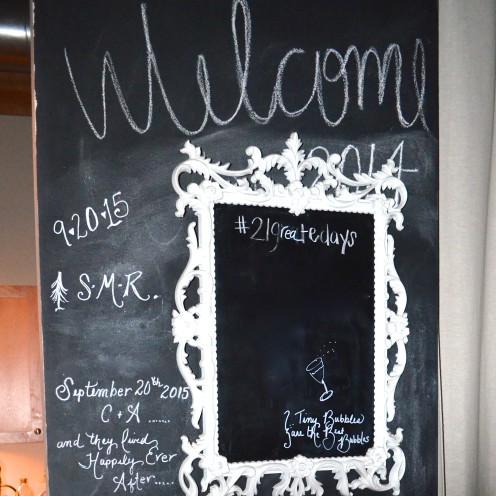 Welcome
2014
#21greatedays
9.20.15
S.M.R.
September 20th 2015
C + A ......
and they lived
Happily Ever
After.....
Tiny Bubbles
are the Best
Bubbles